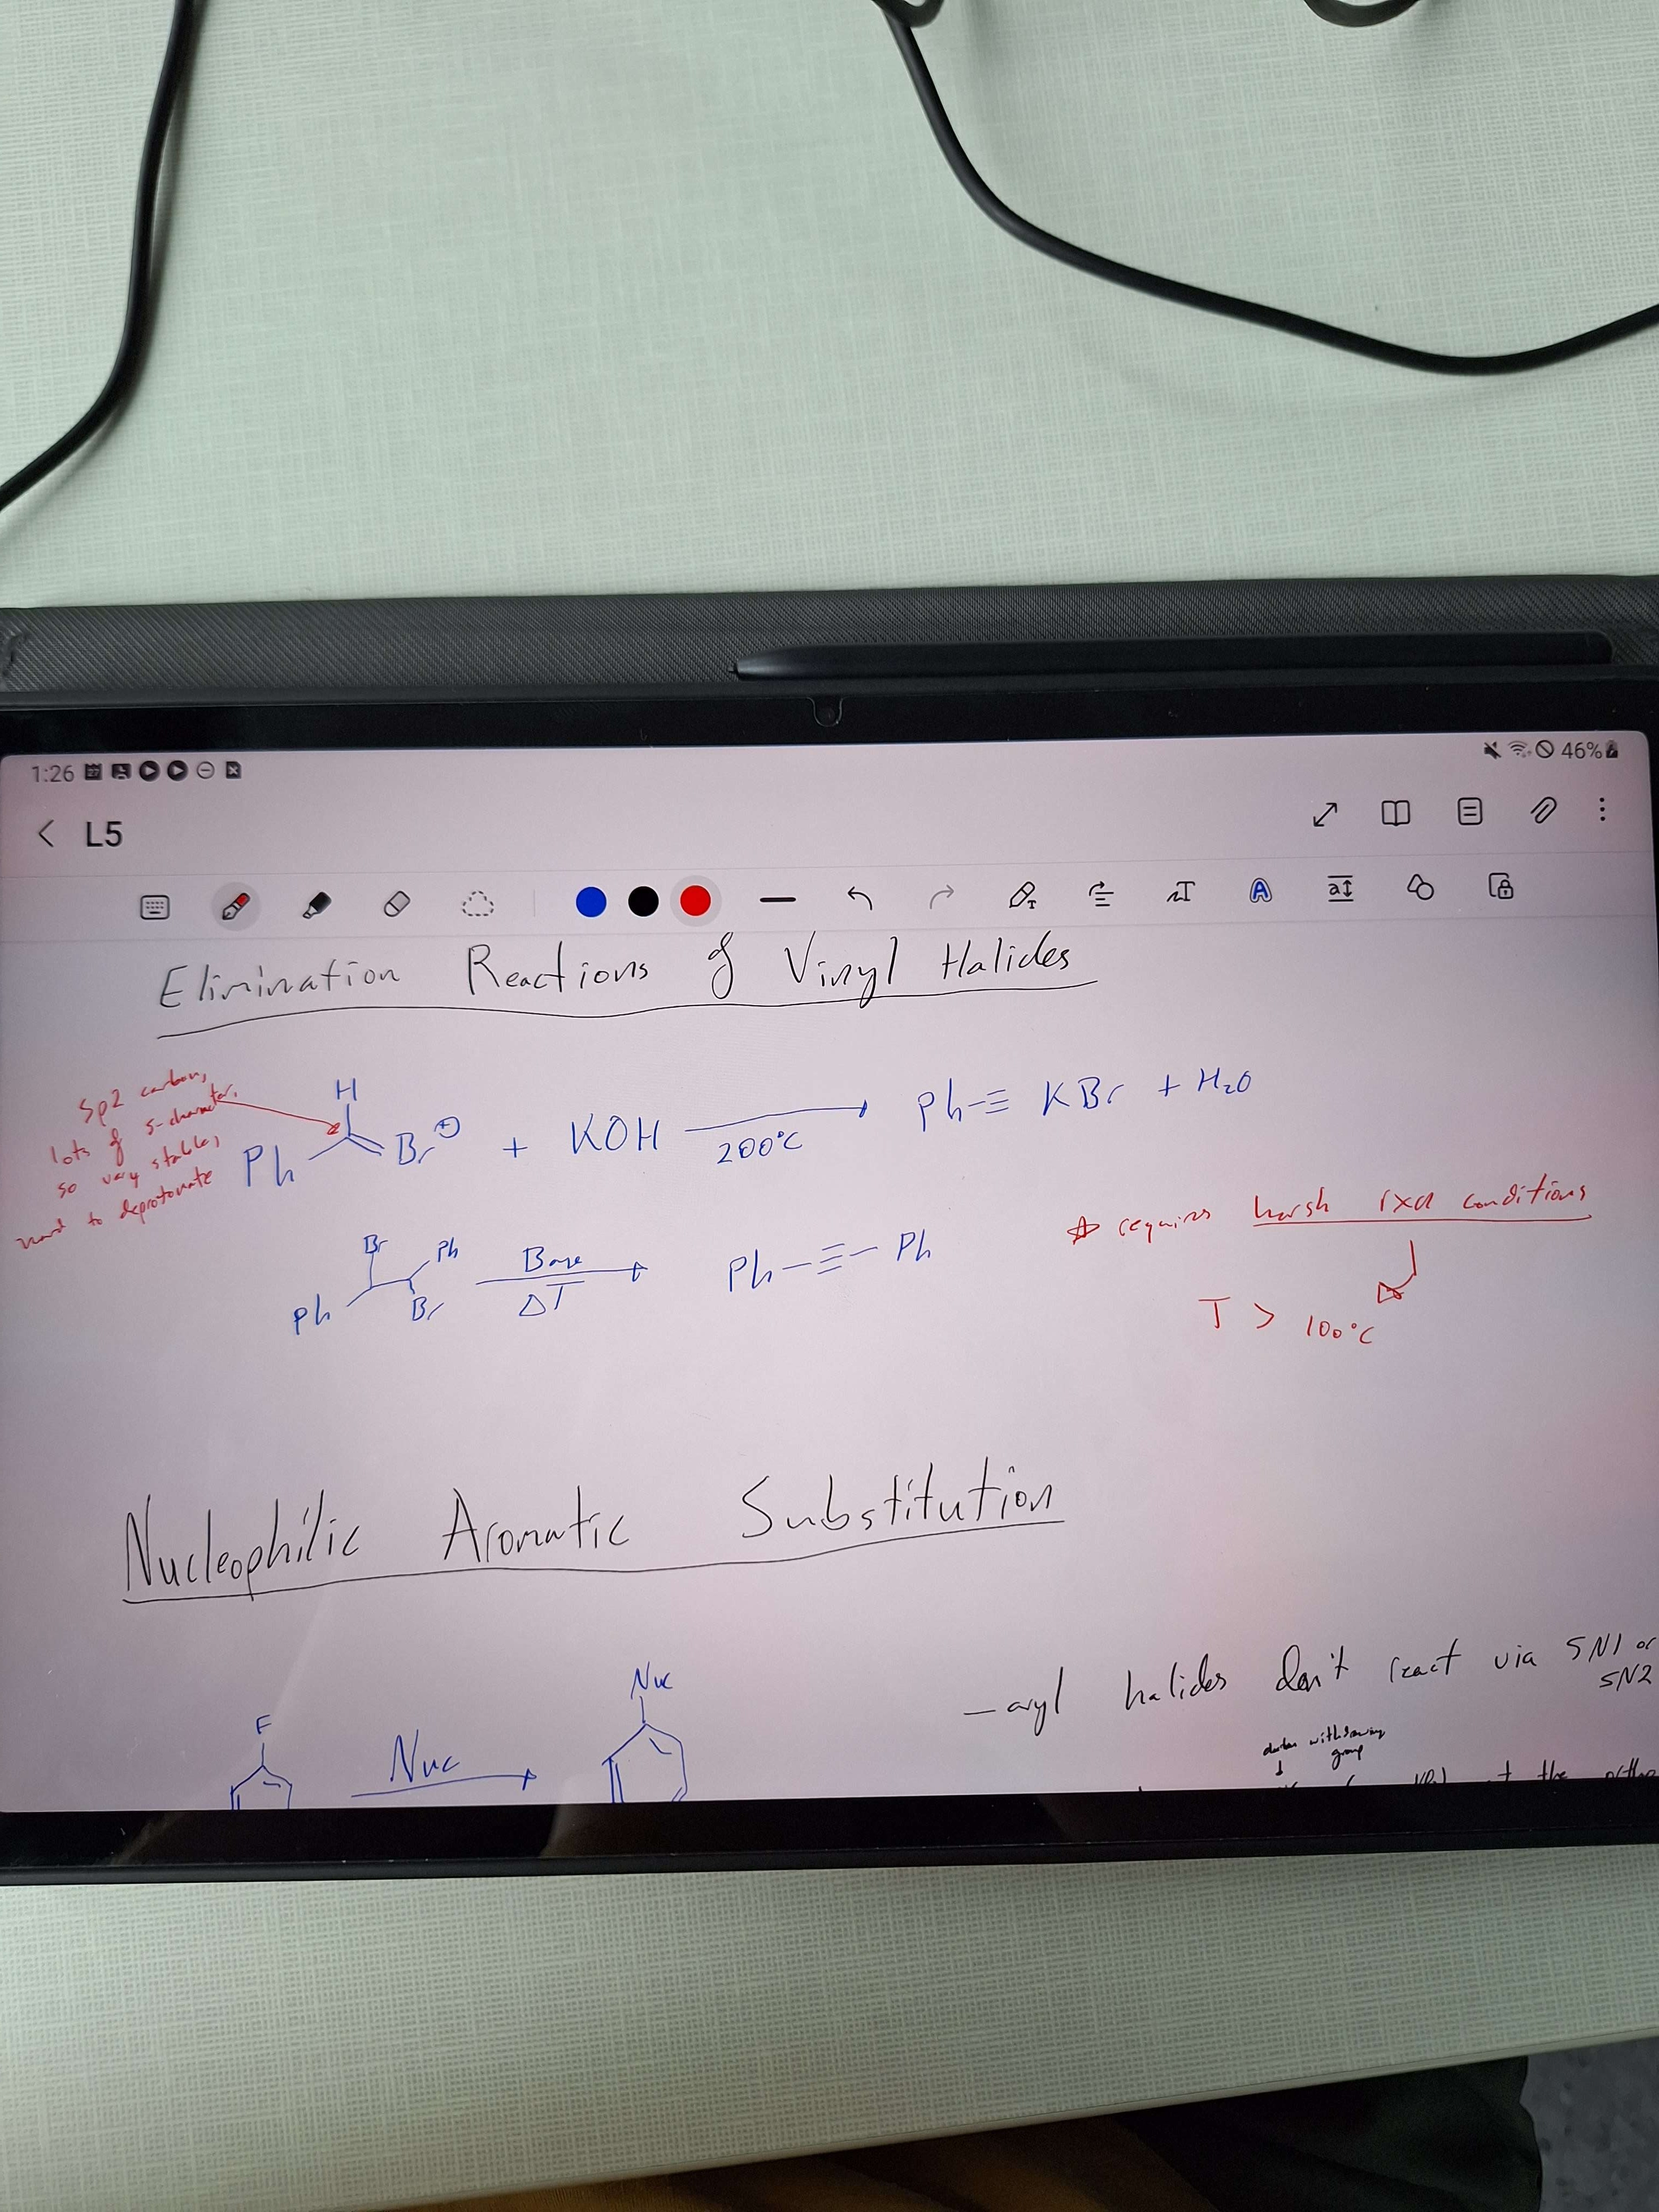 1:26
46%
L5
Elimination Reactions of Vinyl Halides
Sp2 carbon,
lots of s-character,
so very stable,
hard to deprotonate
H
Ph Br ⊕ + KOH 200°C Ph-≡ KBr + H2O
requires harsh rxn conditions
T > 100°C
Br Ph
Ph Br
Base
ΔT
Ph-≡-Ph
Nucleophilic Aromatic Substitution
F
Nuc
Nuc
- aryl halides don't react via SN1 or
SN2
withdrawing
group
at the ortho